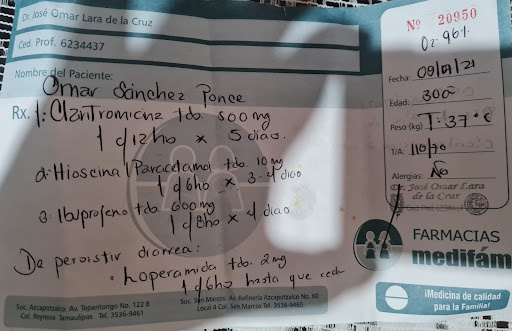 Dr. José Omar Lara de la Cruz
Ced. Prof. 6234437
Nombre del Paciente:
Omar Sánchez Ponce
Rx. 1: Clantromicina tdo. 500 mg
1 c/12 ho x 5 dias.
2: Hioscina/Paracetamol tdo. 10 mg
1 c/6ho x 3-4 dias
3: Ibuprofeno tdo. 600 mg
1 c/8ho x 4 dias
De persistir diarrea:
Loperamida tdo. 2mg
1 c/6ho hasta que ceda
Suc. Azcapotzalco: Av. Tepantongo No. 122 B
Col. Reynosa Tamaulipas Tel. 3536-9461
Suc. San Marcos: Av. Refinería Azcapotzalco No. 60
Local 4 Col. San Marcos Tel. 3536-9460
Nº 20950
O2: 96%
Fecha: 21
Edad:
Peso (kg) T: 37°C
T/A: 110/70
Alergias: No
Dr. José Omar Lara
de la Cruz
FARMACIAS
medifám
¡Medicina de calidad
para la Familia!